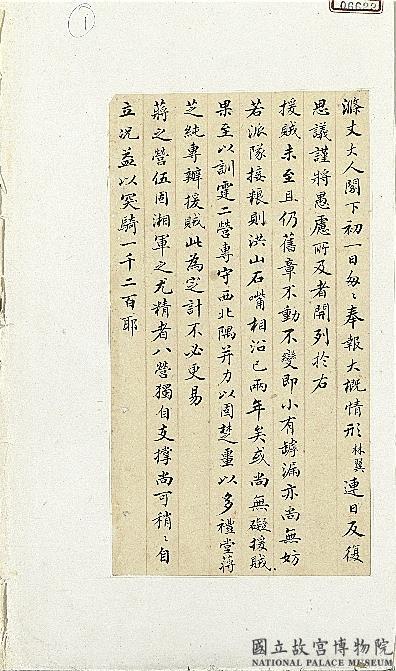 滌丈大人閣下初一日匆〻奉報大概情形林翼連日反復
思議謹將愚慮所及者開列於右
援賊未至且仍舊章不動不變即小有罅漏亦尚無妨
若派隊接糧則洪山石嘴相沿已兩年矣或尚無礙援賊
果至以訓霆二營專守西北隅并力以固楚壘以多禮堂蔣
芝純專辦援賊此為定計不必更易
蔣之營伍固湘軍之尤精者八營獨自支撐尚可稍〻自
立況益以突騎一千二百耶
1
06622
國立故宮博物院
NATIONAL PALACE MUSEUM